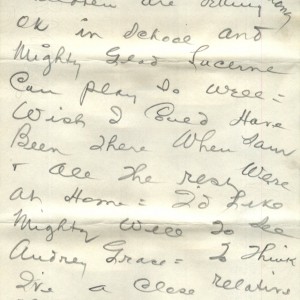 are getting along
OK in School and
Mighty Glad Lucerne
Can play So Well =
Wish I Could Have
Been There When Sam
& all The rest Were
at Home = I'd Like
Mighty Well To See
Audrey Grace = To Think
I've a Close relative